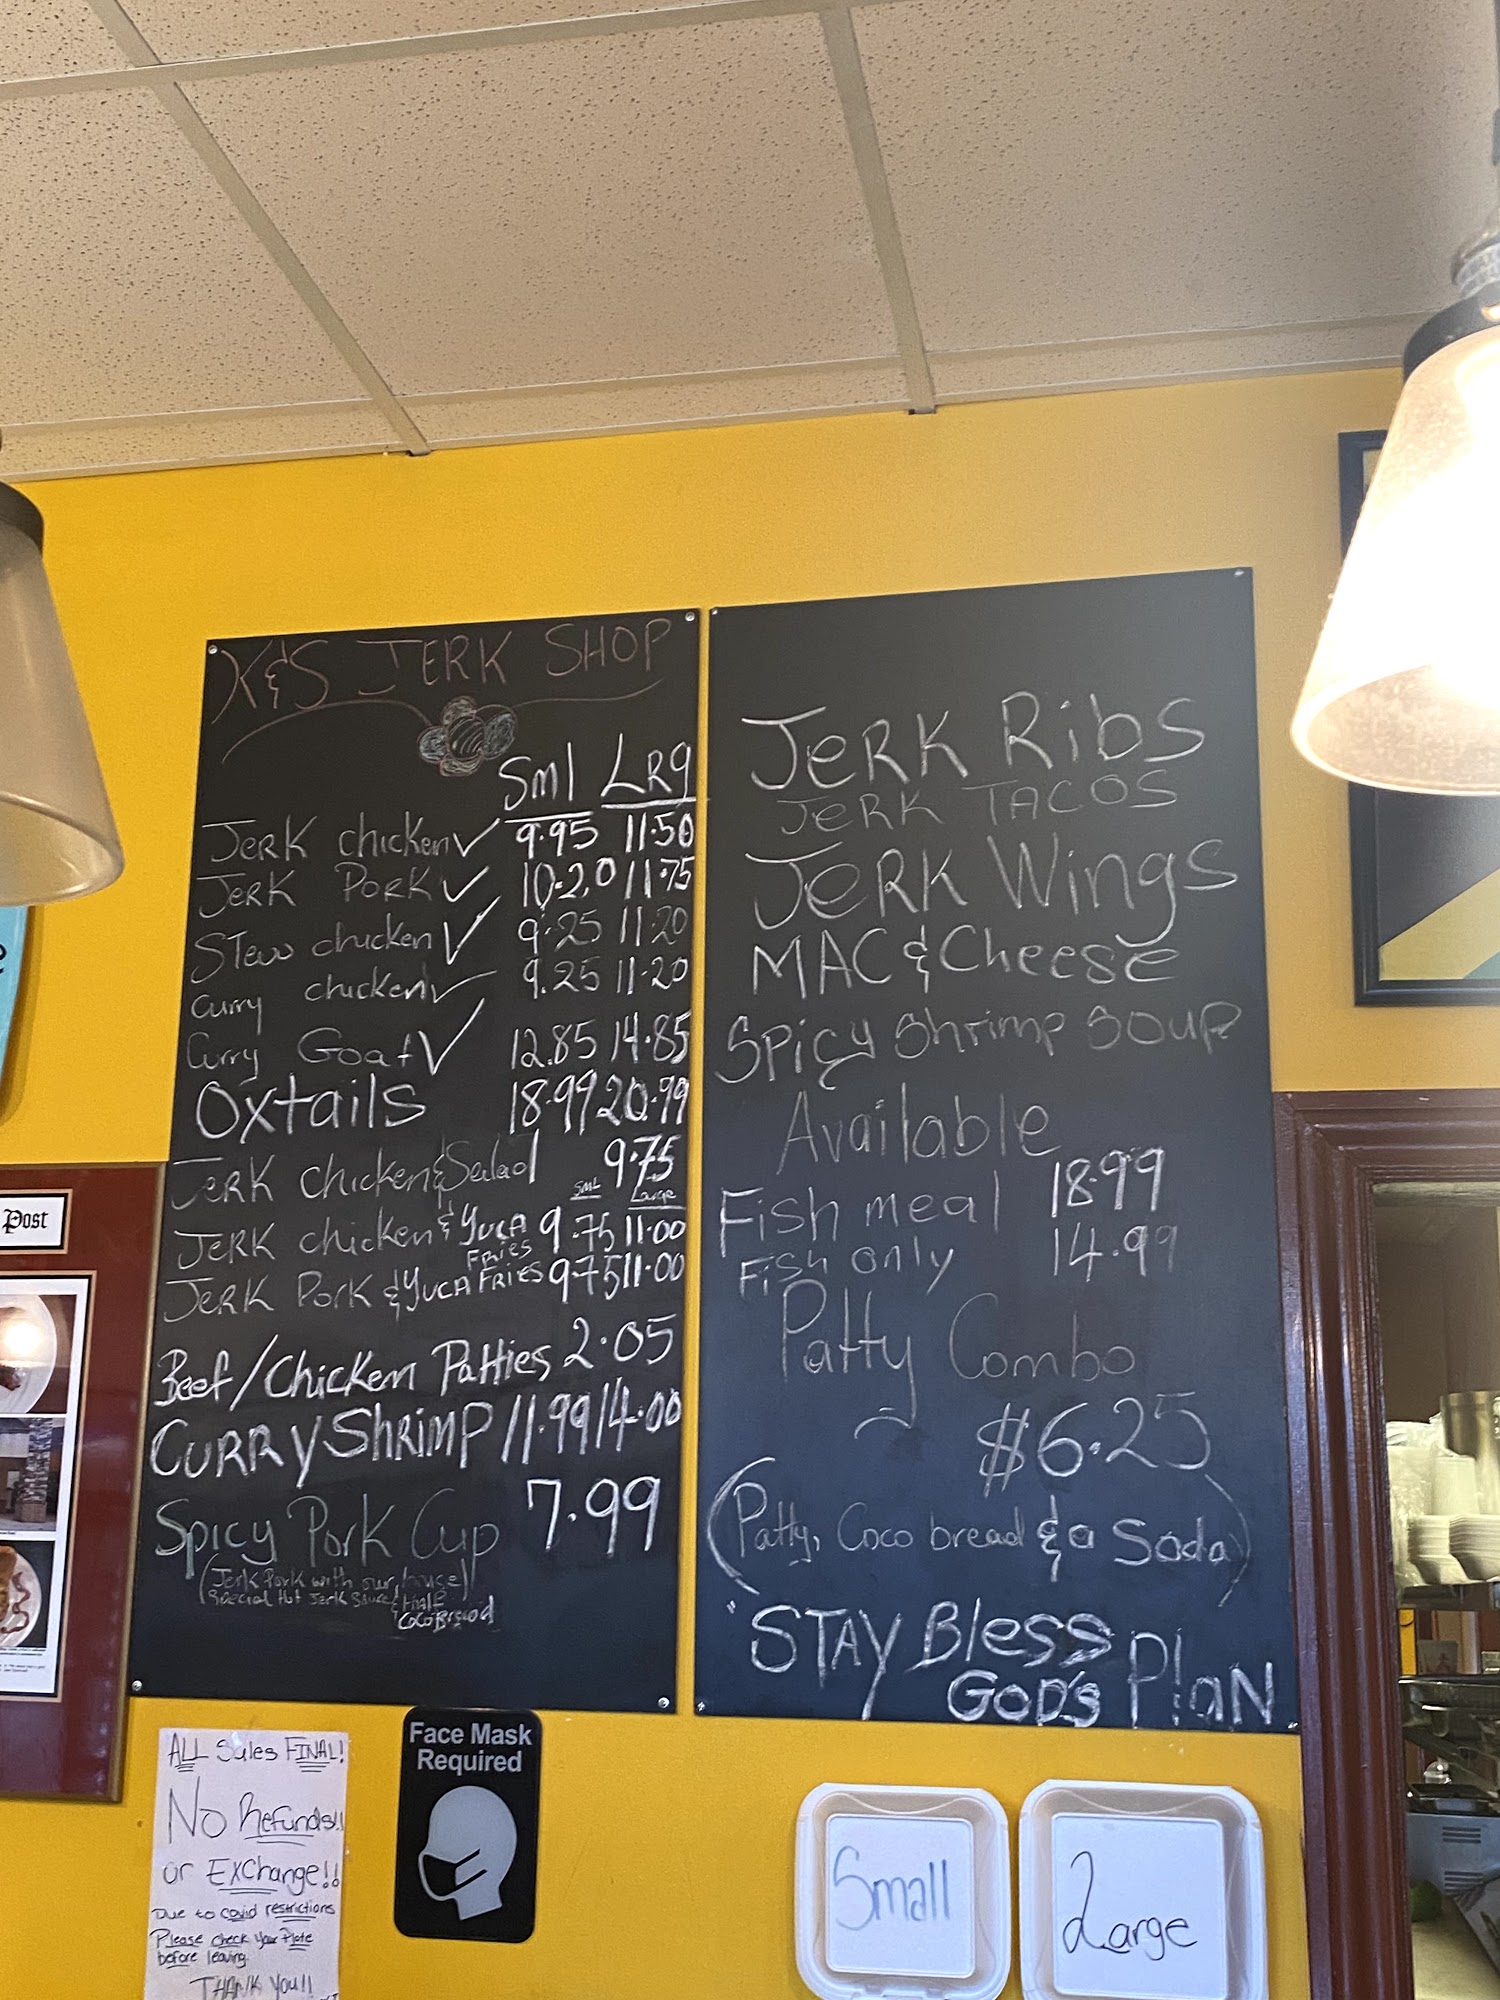 K&S JERK SHOP
Sml LRg
JERK chicken ✓ 9.95 11.50
JERK PORK ✓ 10.20 11.75
Stew chicken ✓ 9.25 11.20
Curry chicken ✓ 9.25 11.20
Curry Goat ✓ 12.85 14.85
Oxtails 18.99 20.99
JERK chicken & Salad 9.75
SML Large
JERK chicken & YUCA FRIES 9.75 11.00
JERK Pork & YUCA FRIES 9.75 11.00
Beef/Chicken Patties 2.05
CURRY SHRIMP 11.99 14.00
Spicy Pork Cup 7.99
(Jerk Pork with our house
Special Hot Jerk Sauce & Half
CocoBread
JERK RibS
JERK TACOS
JeRK WingS
MAC & Cheese
Spicy Shrimp Soup
Available
Fish meal 18.99
Fish only 14.99
Patty Combo
$6.25
(Patty, Coco bread & a Soda)
"STAY Bless
GOD's PlaN
ALL Sales FINAL!
No Refunds!!
or EXChange!!
Due to covid restrictions
Please check Your Plate
before leaving.
THANK You!!
Face Mask
Required
Small
Large
Post